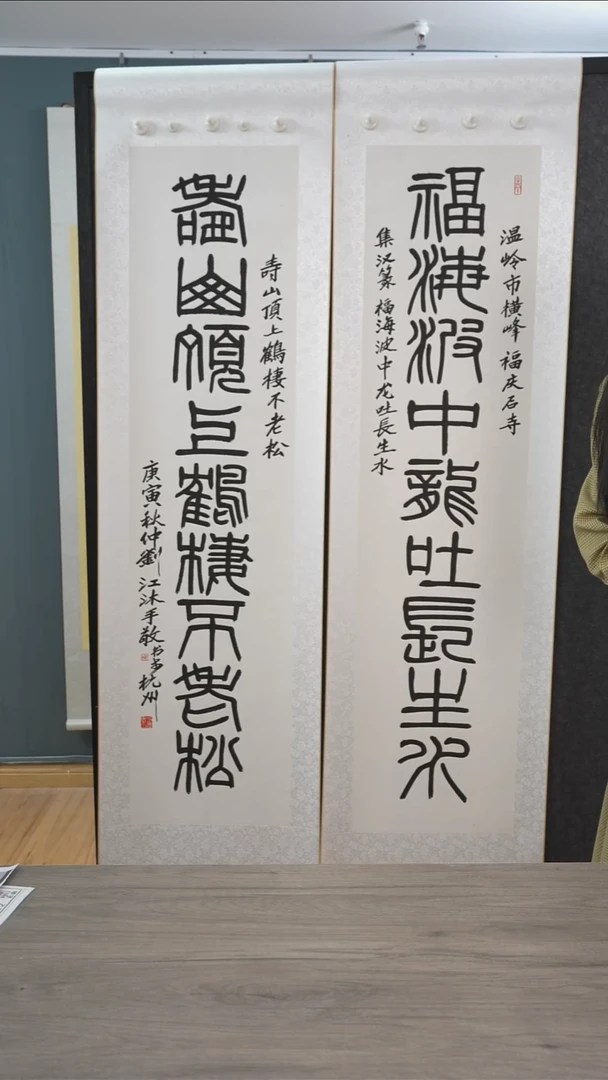 温岭市横峰 福庆石寺
福海波中龍吐長生水
集汉篆 福海波中龙吐長生水
寿山頂上鶴棲不老松
壽山頂上鶴棲不老松
庚寅秋仲劉江沐手敬书于杭州